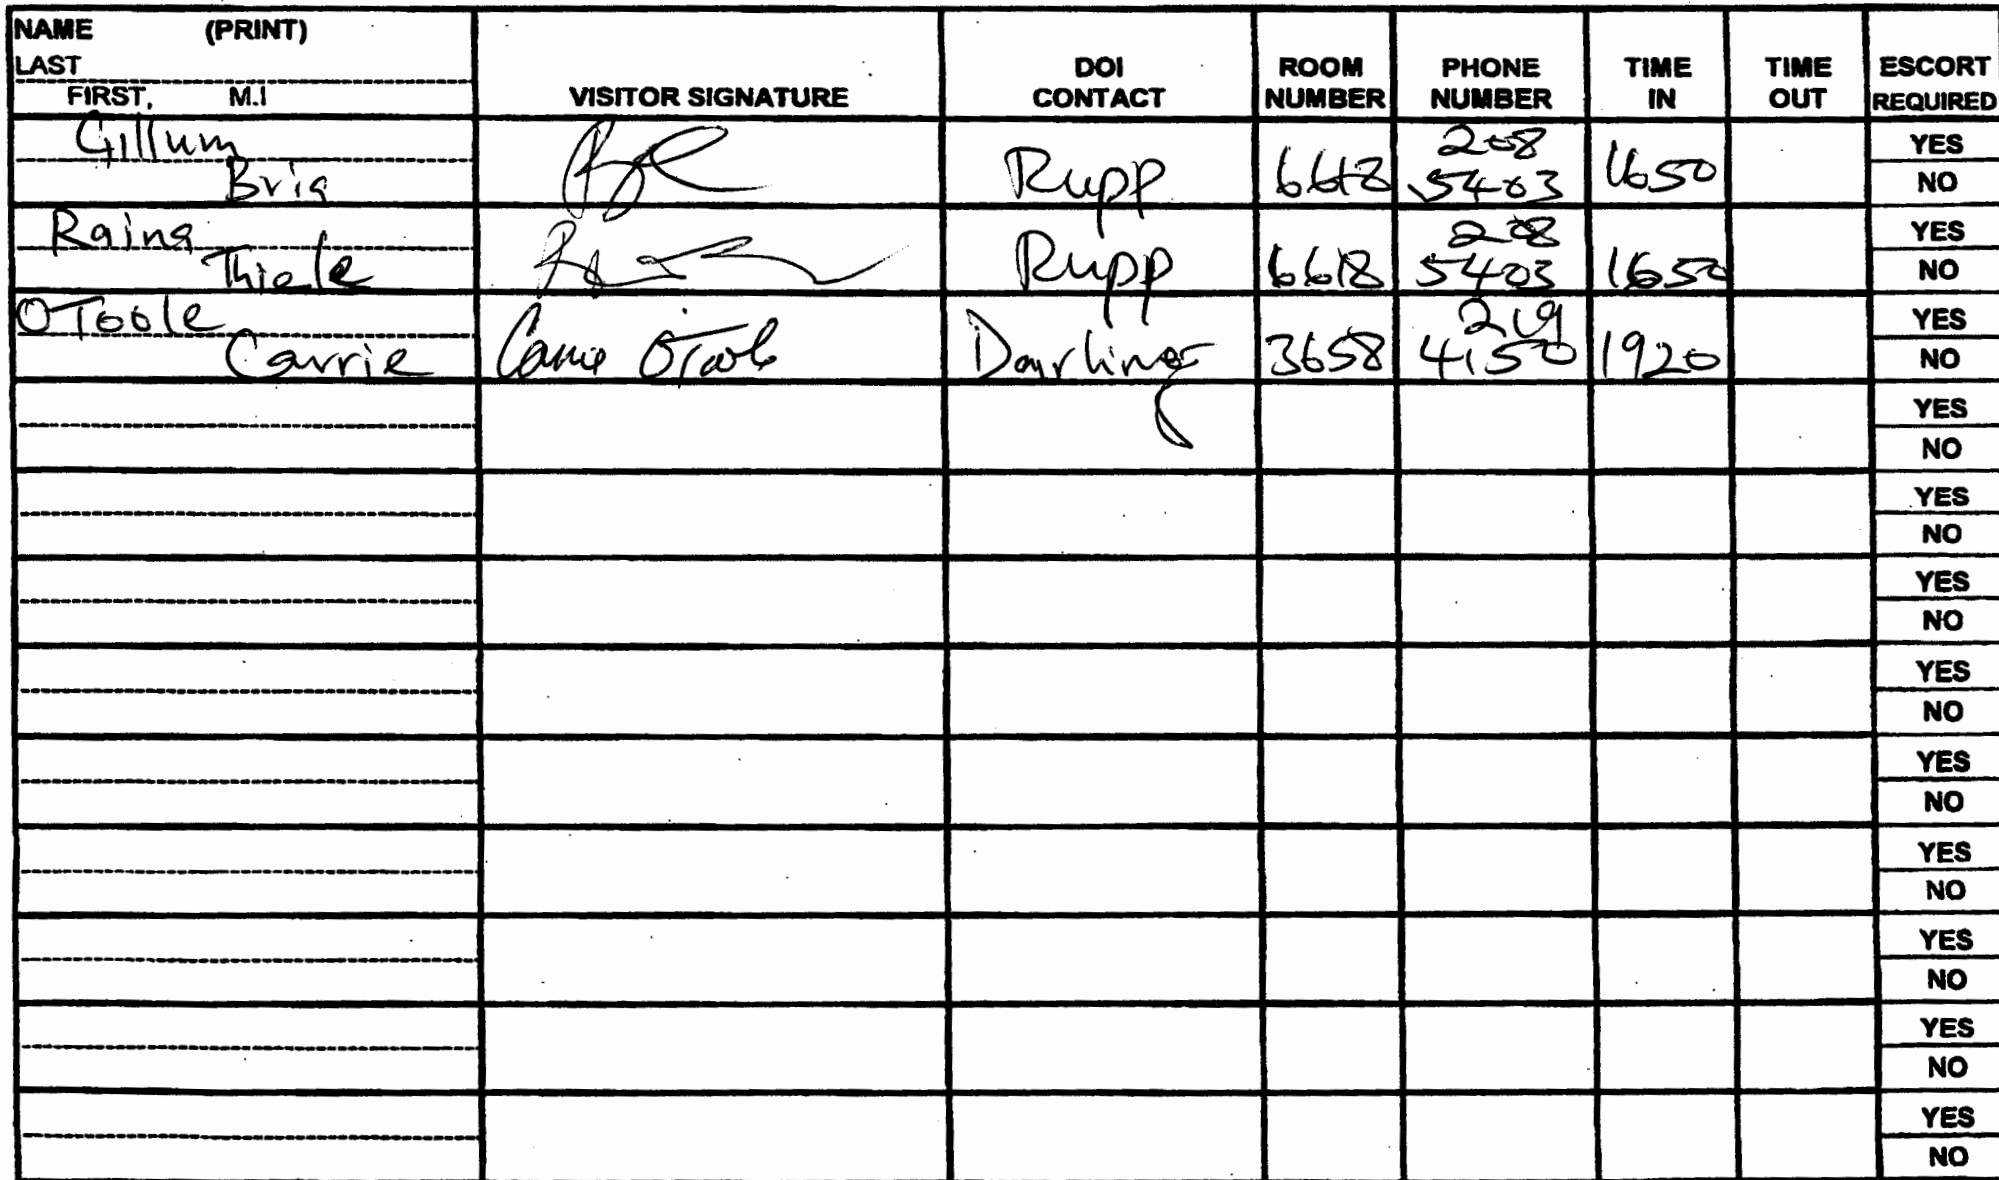 NAME (PRINT)
LAST
FIRST, M.I
VISITOR SIGNATURE
DOI
CONTACT
ROOM
NUMBER
PHONE
NUMBER
TIME
IN
TIME
OUT
ESCORT
REQUIRED
Gillum
Bria
Rupp
6618
208
5403
1650
YES
NO
Raina
Thiele
Rupp
6618
208
5403
1650
YES
NO
OToole
Carrie
Carrie OToole
Darling
3658
219
4150
1920
YES
NO
YES
NO
YES
NO
YES
NO
YES
NO
YES
NO
YES
NO
YES
NO
YES
NO
YES
NO